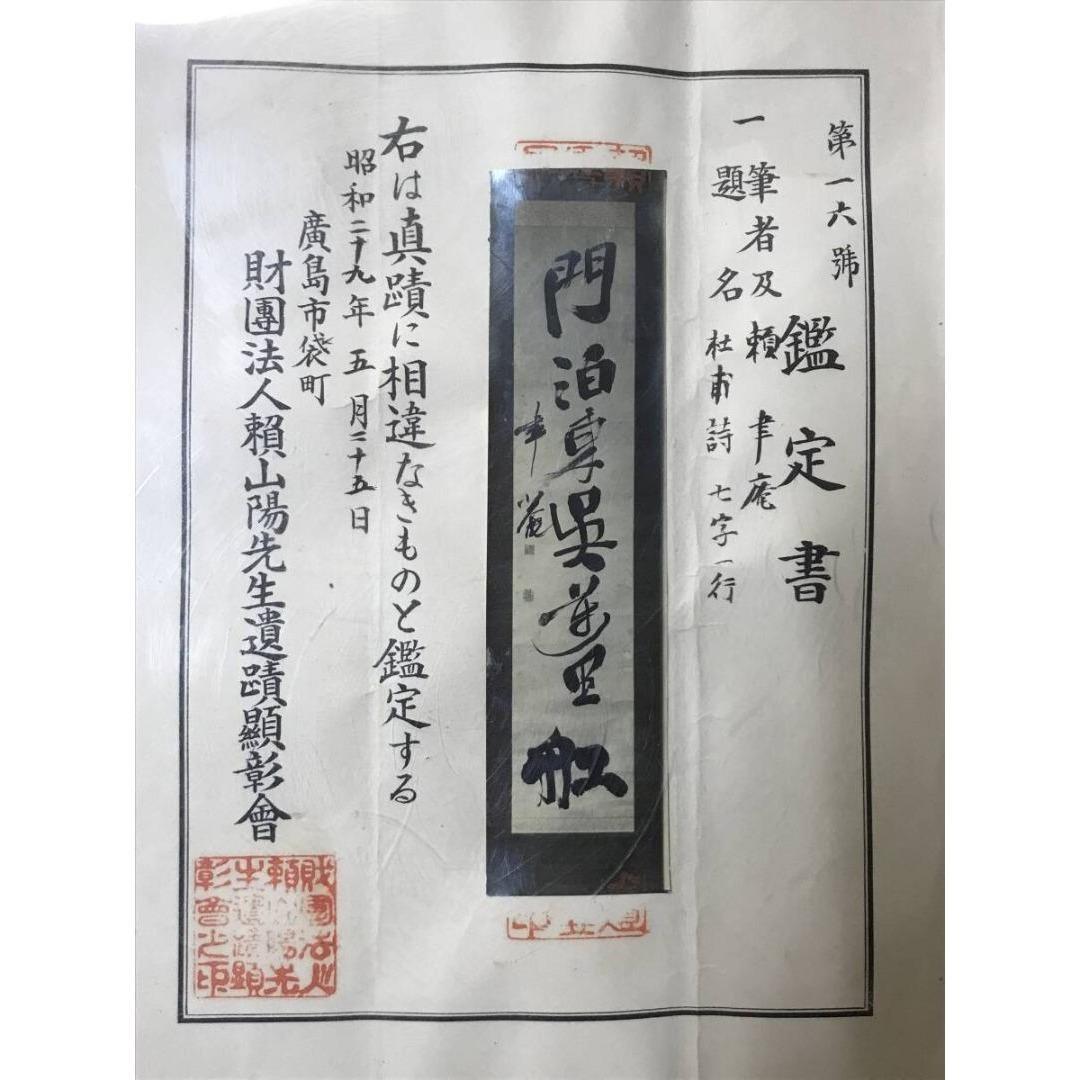 第一六號
鑑定書
一 筆者及 賴 聿庵
題名 杜甫詩 七字一行
門泊東吳萬里船
聿庵
右は真蹟に相違なきものと鑑定する
昭和二十九年 五月二十五日
廣島市袋町
財團法人賴山陽先生遺蹟顯彰會
財團法人
賴山陽先
生遺蹟顯
彰會之印